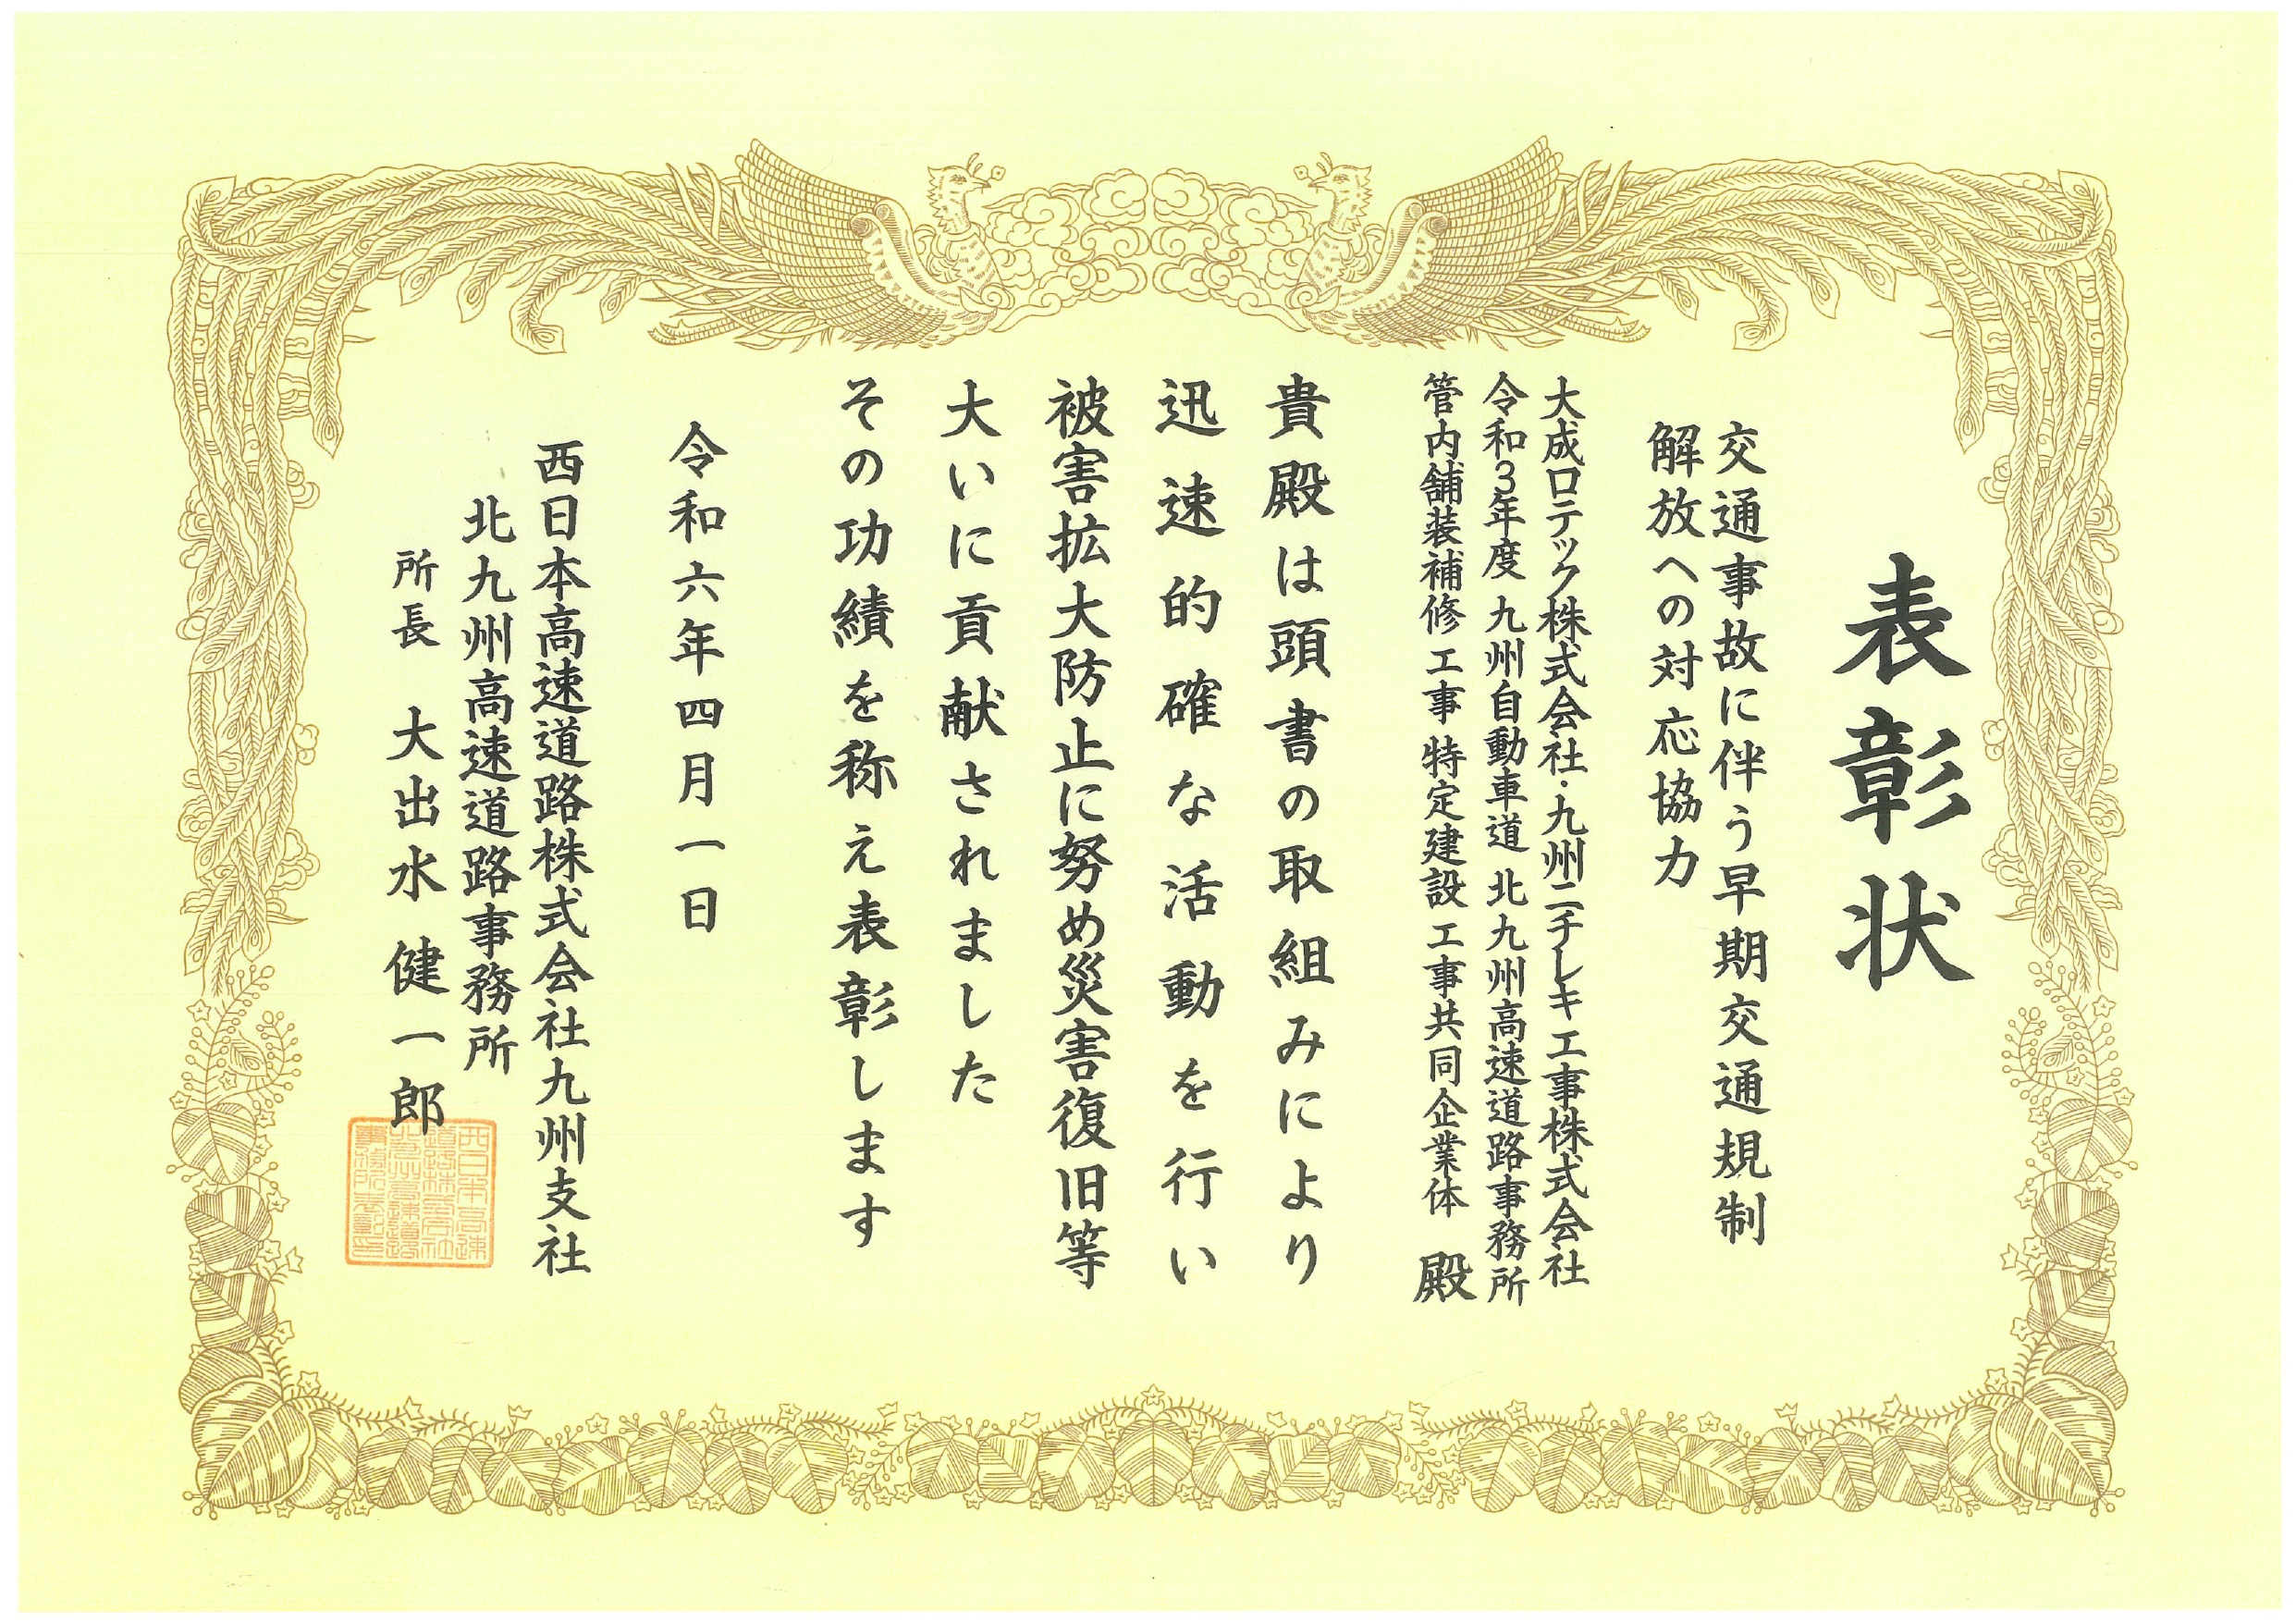 表彰状
交通事故に伴う早期交通規制
解放への対応協力
大成ロテック株式会社・九州ニチレキ工事株式会社
令和3年度 九州自動車道 北九州高速道路事務所
管内舗装補修工事 特定建設工事共同企業体 殿
貴殿は頭書の取組みにより
迅速的確な活動を行い
被害拡大防止に努め災害復旧等
大いに貢献されました
その功績を称え表彰します
令和六年四月一日
西日本高速道路株式会社九州支社
北九州高速道路事務所
所長 大出水健一郎
西日本高速
道路株式会社
北九州高速道路
事務所表彰印